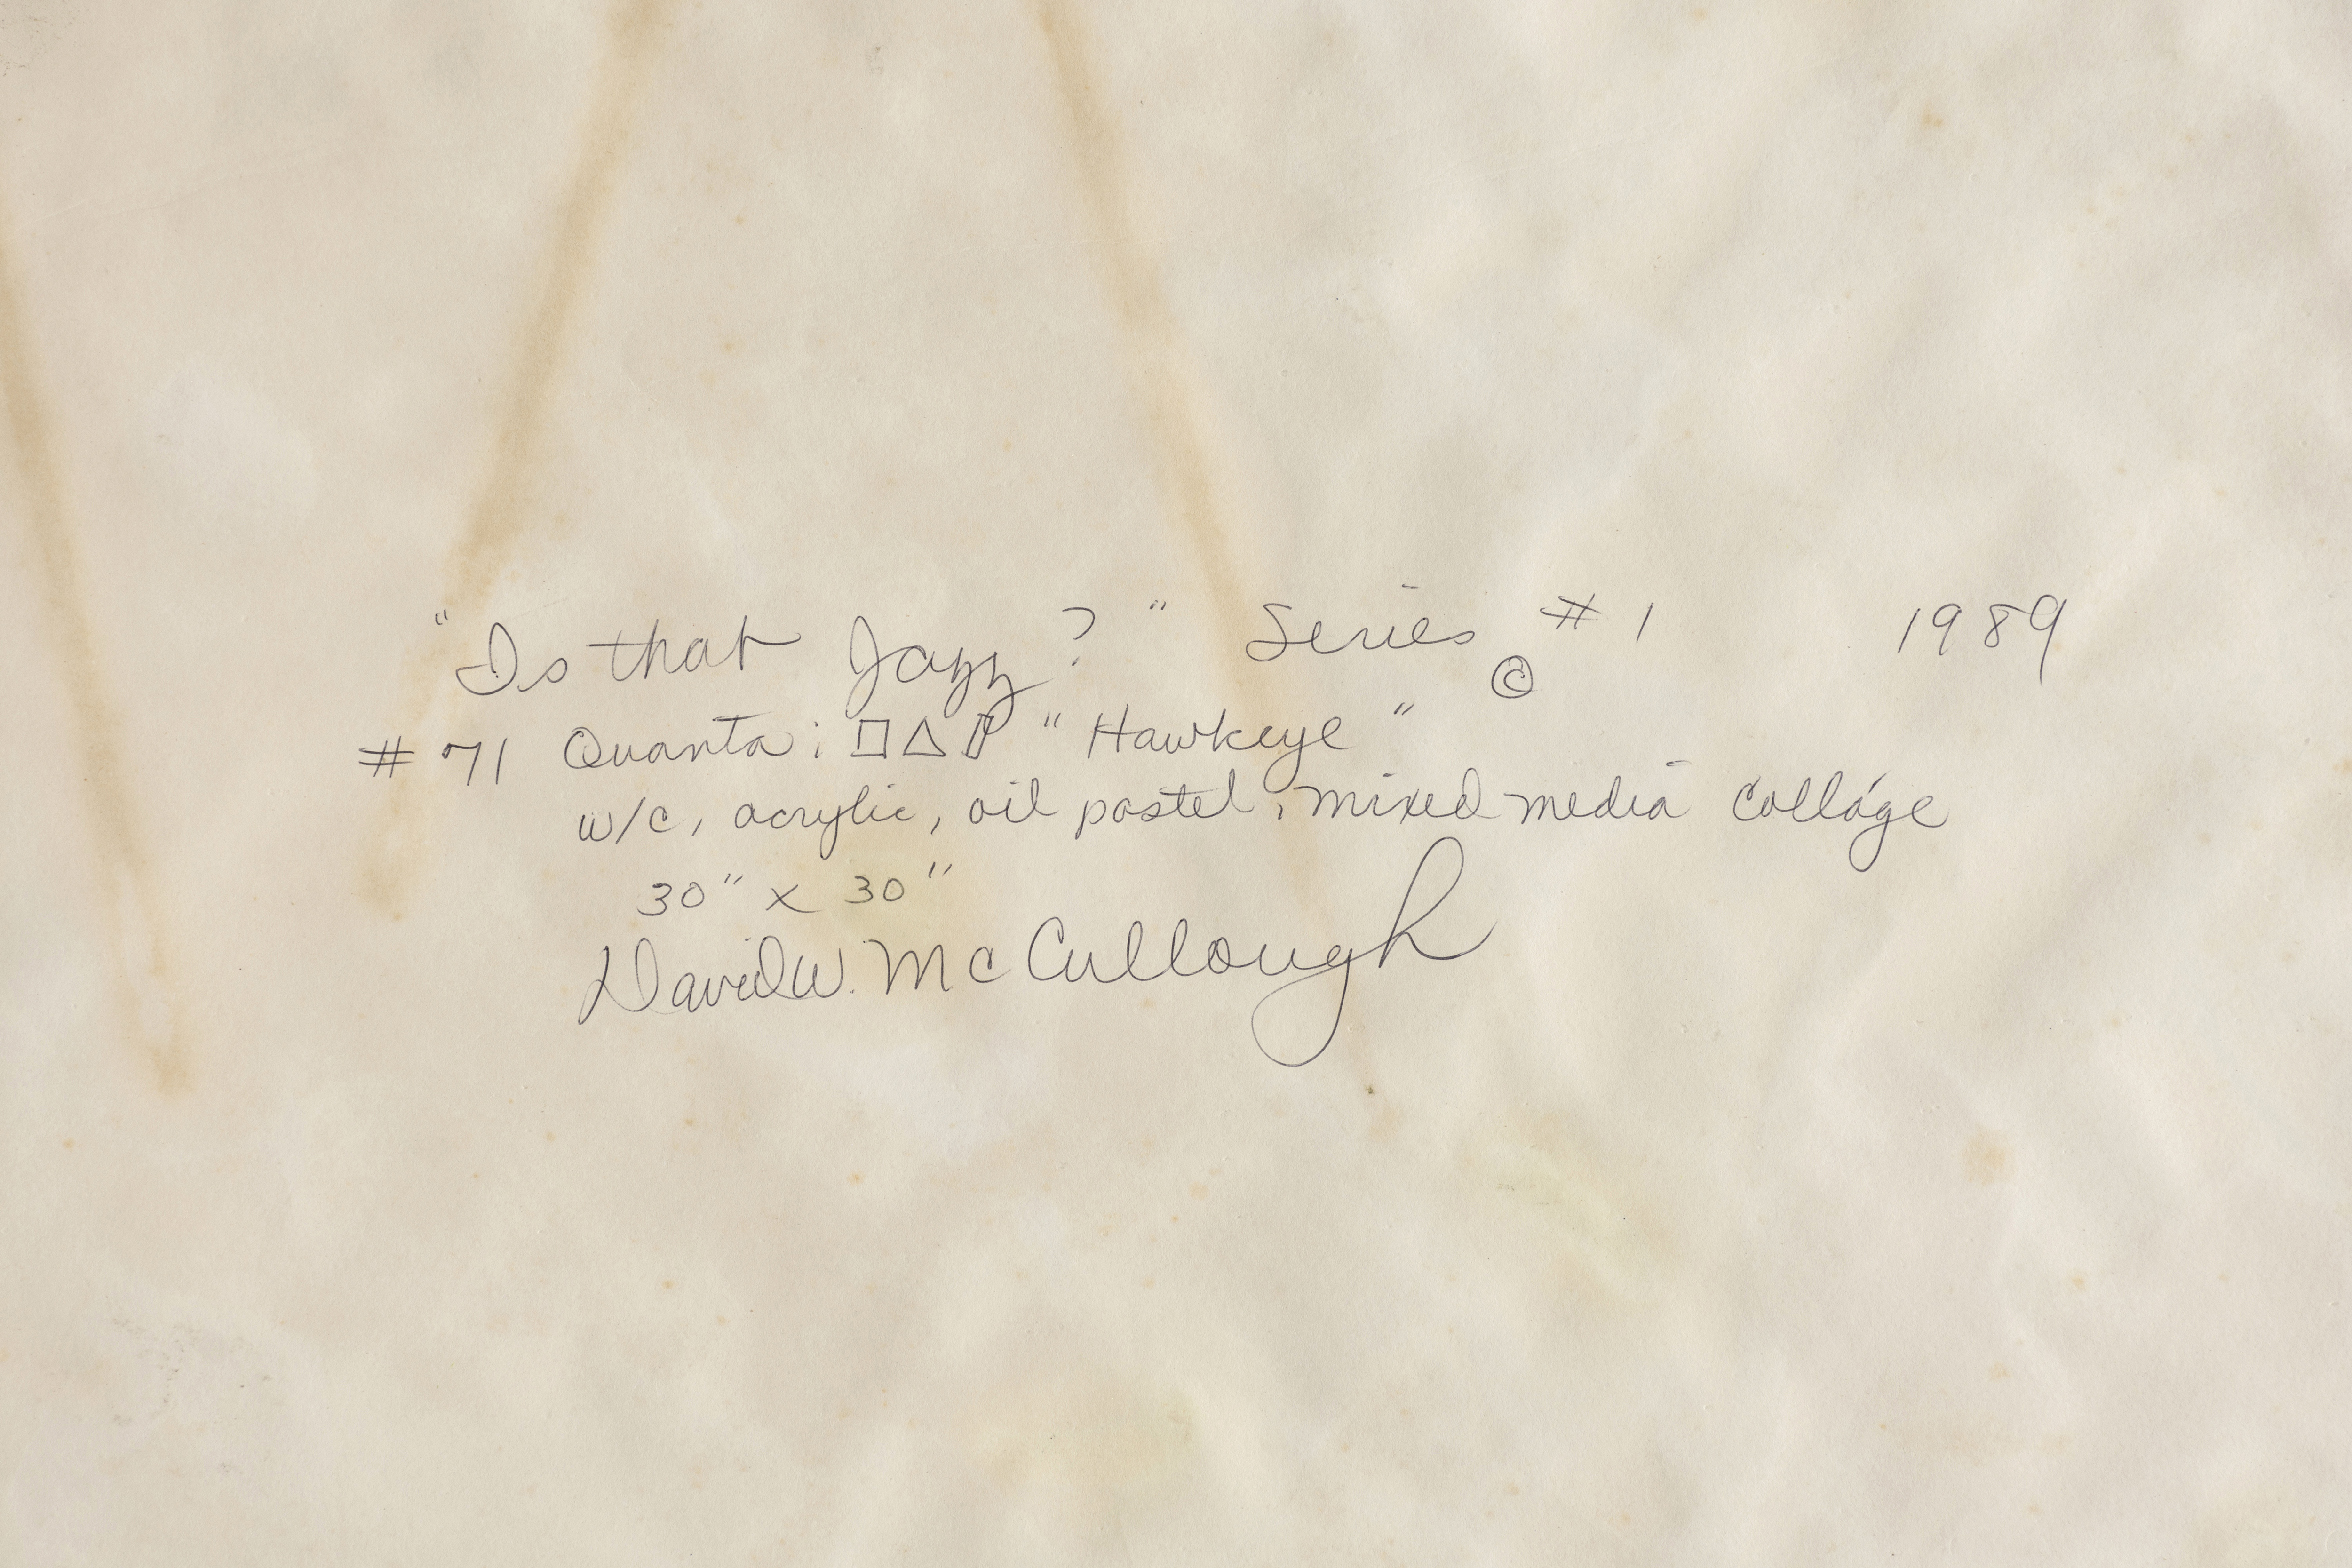 "Is that Jazz?" Series #1 © 1989
#71 Quanta: □△▱ "Hawkeye"
w/c, acrylic, oil pastel, mixed media collage
30" x 30"
David W. McCullough